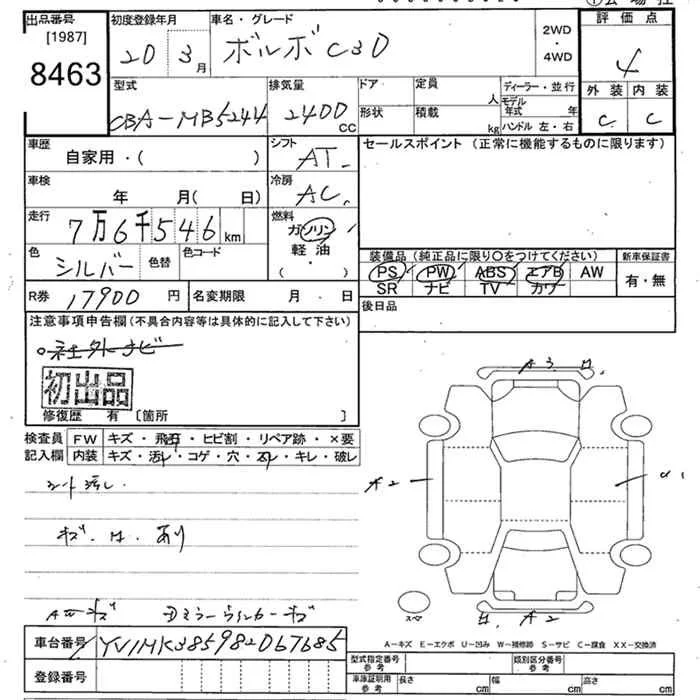 出品番号 初度登録年月 車名・グレード 評価点
[1987] 20 3月 ボルボ C30 2WD・4WD 4
8463 外装 内装
C C
型式 排気量 ドア 定員 人 ディーラー・並行
CBA-MB5244 2400 CC 形状 積載 kg モデル年式 年
ハンドル 左・右
車歴 シフト セールスポイント (正常に機能するものに限ります)
自家用・( ) AT
車検 冷房
年 月( 日) AC
走行 燃料
7万6千546 km ガソリン
軽油
・( ・ )
色 シルバー 色替 色コード
装備品 (純正品に限り〇をつけてください) 新車保証書
PS PW ABS エアB AW 有・無
SR ナビ TV カワ
R券 17900 円 名変期限 月 日 後日品
注意事項申告欄 (不具合内容等は具体的に記入して下さい)
社外ナビ
初出品
修復歴 有 〔箇所 〕
検査員 FW キズ・飛石・ヒビ割・リペア跡・×要
記入欄 内装 キズ・汚レ・コゲ・穴・スレ・キレ・破レ
シート汚し.
キズ. 凹. あり
A3. 凹.
A2
凹 A2
スペ
AWキズ
ミラーウィンカーキズ
A-キズ E-エクボ U-凹み W-補修跡 S-サビ C-腐食 XX-交換済
車台番号 YV1MK385982067685
型式指定番号 参考 類別区分番号 参考
登録番号
車庫証明用 参考 長さ cm 幅 cm 高さ cm